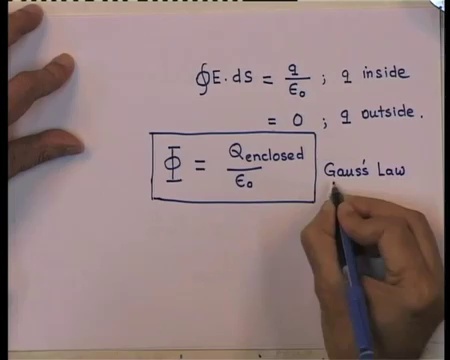 ∮E.ds = q/ε₀ ; q inside
= 0 ; q outside.
Φ = Qenclosed/ε₀
Gauss's Law